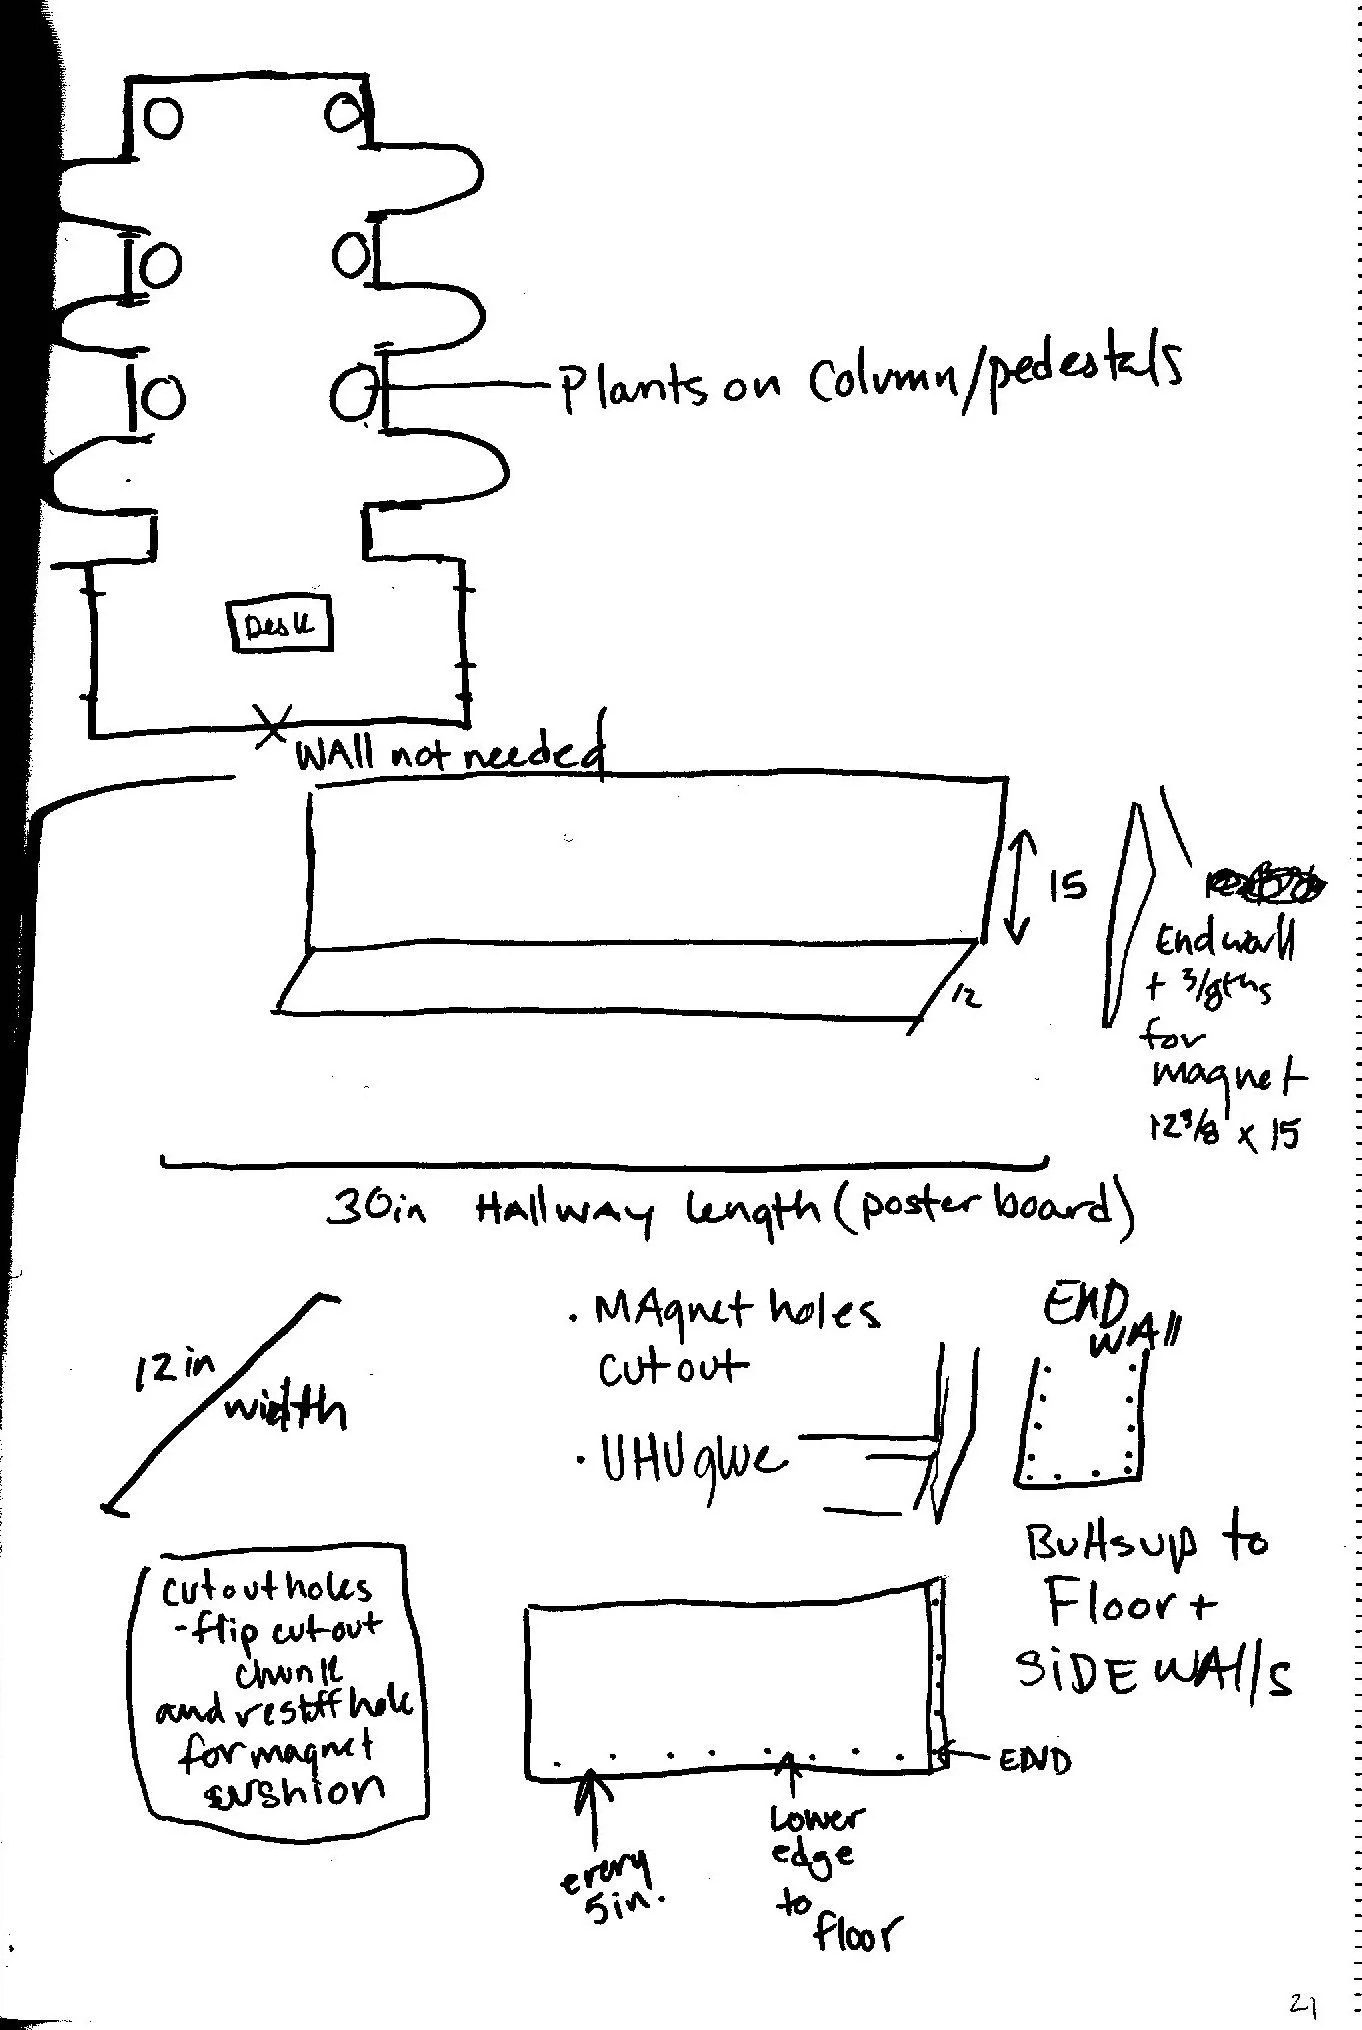 Plants on Column/pedestals
Desk
WAll not needed
15
12
End wall
+ 3/8ths
for
magnet
12 3/8 x 15
30in Hallway length (poster board)
12in
width
. MAgnet holes
cut out
. UHU glue
END
WAll
Butts up to
Floor +
SiDE WAlls
cut out holes
- flip cut out
chunk
and restuff hole
for magnet
cushion
END
every
5in.
Lower
edge
to
floor
21